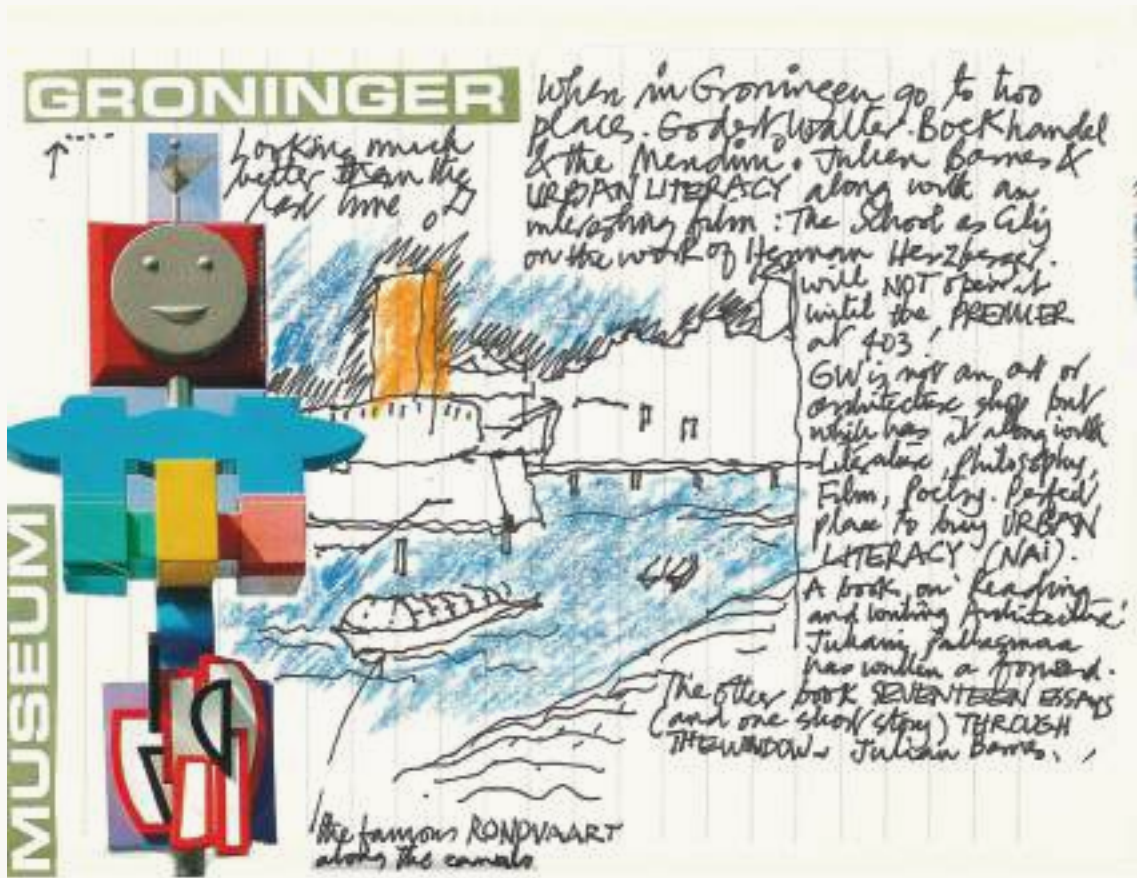 GRONINGER
MUSEUM
Looking much
better than the
last time.
When in Groningen go to two
places. Godert Walter Boekhandel
& the Mendini. Julien Barnes &
URBAN LITERACY along with an
interesting film: The School as City
on the work of Herman Herzberger.
will NOT open it
until the PREMIER
at 403!
GW is not an art or
architecture shop but
which has it along with
Literature, Philosophy,
Film, Poetry. Perfect
place to buy URBAN
LITERACY (NAi).
A book on 'Reading
and writing Architecture'
Juhani Pallasmaa
has written a forward.
The other book SEVENTEEN ESSAYS
(and one short story) THROUGH
THE WINDOW - Julian Barnes.
the famous RONDVAART
along the canals